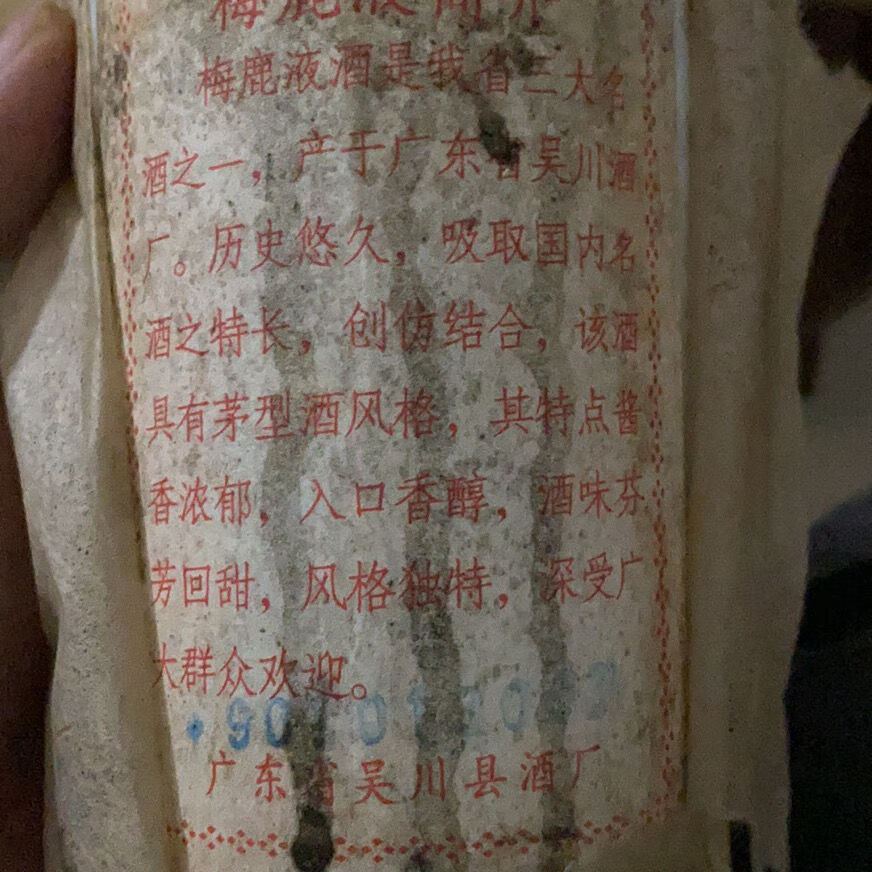 梅鹿液简介
梅鹿液酒是我省三大名
酒之一，产于广东省吴川酒
厂。历史悠久，吸取国内名
酒之特长，创仿结合，该酒
具有茅型酒风格，其特点酱
香浓郁，入口香醇，酒味芬
芳回甜，风格独特，深受广
大群众欢迎。
广东省吴川县酒厂